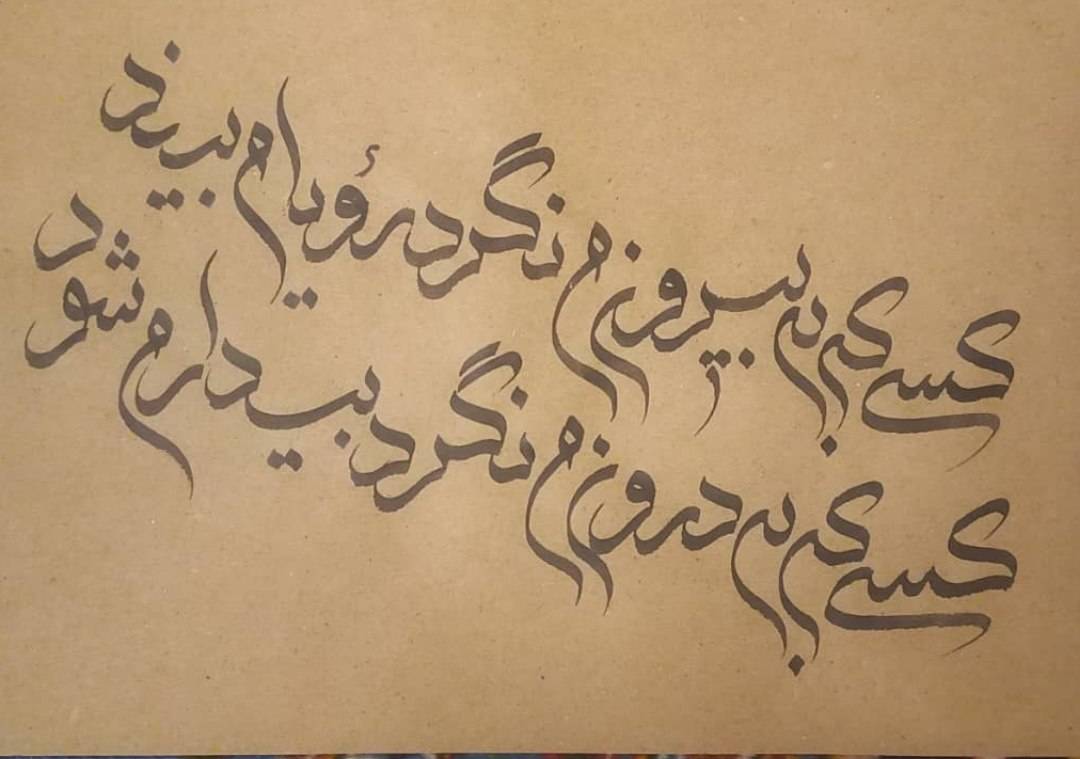 کسی که به بیرون می نگرد رؤیا می بیند
کسی که به درون می نگرد بیدار می شود